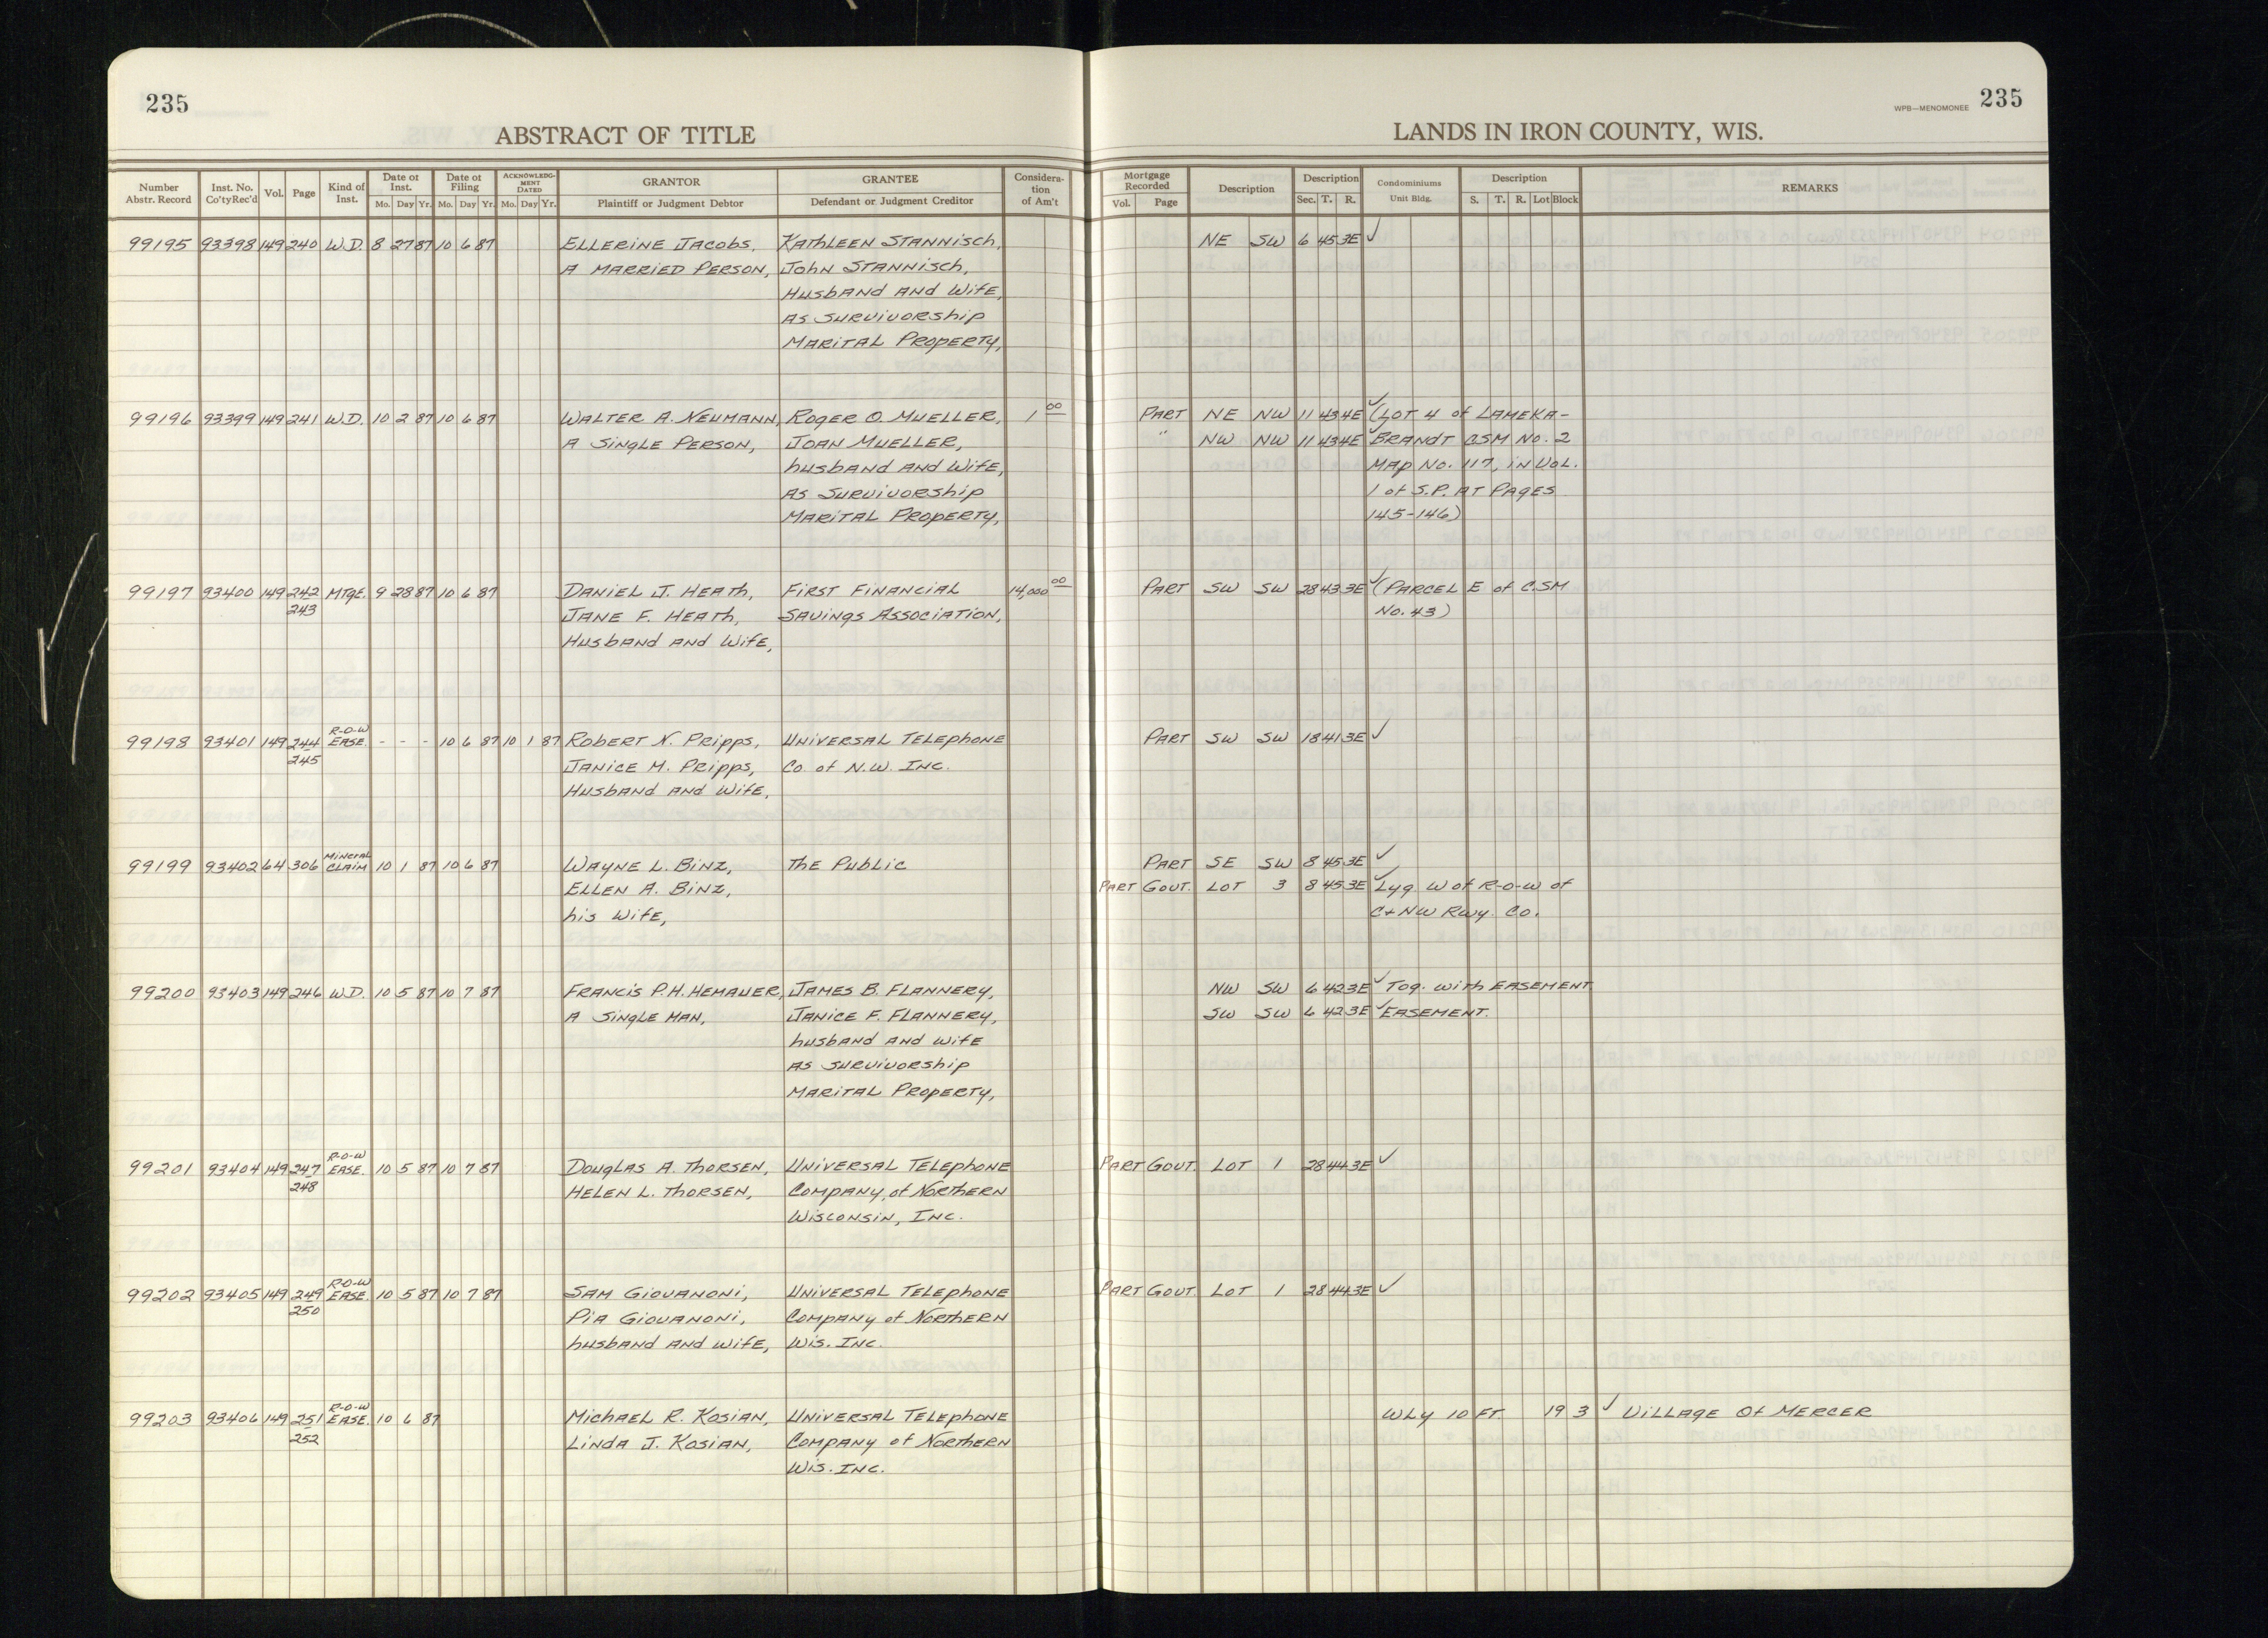 235
ABSTRACT OF TITLE
LANDS IN IRON COUNTY, WIS.
WPB—MENOMONEE 235
Number Abstr. Record | Inst. No. Co'ty Rec'd | Vol. | Page | Kind of Inst. | Date of Inst. Mo. Day Yr. | Date of Filing Mo. Day Yr. | ACKNOWLEDGMENT DATED Mo. Day Yr. | GRANTOR Plaintiff or Judgment Debtor | GRANTEE Defendant or Judgment Creditor | Consideration of Am't | Mortgage Recorded Vol. Page | Description | Description Sec. T. R. | Condominiums Unit Bldg. | Description S. T. R. Lot Block | REMARKS
99195 93398 149 240 W.D. 8 27 87 10 6 87 ELLERINE JACOBS, KATHLEEN STANNISCH, NE SW 6 45 3E ✓
A MARRIED PERSON, JOHN STANNISCH,
HUSBAND AND WIFE,
AS SURVIVORSHIP
MARITAL PROPERTY,
99196 93399 149 241 W.D. 10 2 87 10 6 87 WALTER A. NEUMANN, ROGER O. MUELLER, 1 00 PART NE NW 11 43 4E ✓ (LOT 4 of LAMEKA-
A SINGLE PERSON, JOAN MUELLER, " NW NW 11 43 4E ✓ BRANDT CSM NO. 2
HUSBAND AND WIFE, MAP NO. 117, IN VOL.
AS SURVIVORSHIP 1 of S.P. AT PAGES
MARITAL PROPERTY, 145-146)
99197 93400 149 242 MTGE. 9 28 87 10 6 87 DANIEL J. HEATH, FIRST FINANCIAL 14,000 00 PART SW SW 28 43 3E ✓ (PARCEL E of C.SM
243 JANE F. HEATH, SAVINGS ASSOCIATION, NO. 43)
HUSBAND AND WIFE,
R-O-W
99198 93401 149 244 EASE. - - - 10 6 87 10 1 87 ROBERT N. PRIPPS, UNIVERSAL TELEPHONE PART SW SW 18 41 3E ✓
245 JANICE M. PRIPPS, CO. of N.W. INC.
HUSBAND AND WIFE,
MINERAL
99199 93402 64 306 CLAIM 10 1 87 10 6 87 WAYNE L. BINZ, THE PUBLIC PART SE SW 8 45 3E ✓
ELLEN A. BINZ, PART GOVT. LOT 3 8 45 3E ✓ Lyg W of R-O-W of
HIS WIFE, C+NW Rwy. Co.
99200 93403 149 246 W.D. 10 5 87 10 7 87 FRANCIS P.H. HEMAUER, JAMES B. FLANNERY, NW SW 6 42 3E ✓ TOG. WITH EASEMENT
A SINGLE MAN, JANICE F. FLANNERY, SW SW 6 42 3E ✓ EASEMENT.
HUSBAND AND WIFE
AS SURVIVORSHIP
MARITAL PROPERTY,
R-O-W
99201 93404 149 247 EASE. 10 5 87 10 7 87 DOUGLAS A. THORSEN, UNIVERSAL TELEPHONE PART GOVT. LOT 1 28 44 3E ✓
248 HELEN L. THORSEN, COMPANY, of NORTHERN
WISCONSIN, INC.
R-O-W
99202 93405 149 249 EASE. 10 5 87 10 7 87 SAM GIOVANONI, UNIVERSAL TELEPHONE PART GOVT. LOT 1 28 44 3E ✓
250 PIA GIOVANONI, COMPANY of NORTHERN
HUSBAND AND WIFE, WIS. INC.
R-O-W
99203 93406 149 251 EASE. 10 6 87 MICHAEL R. KOSIAN, UNIVERSAL TELEPHONE WLY 10 FT. 19 3 ✓ VILLAGE OF MERCER
252 LINDA J. KOSIAN, COMPANY of NORTHERN
WIS. INC.